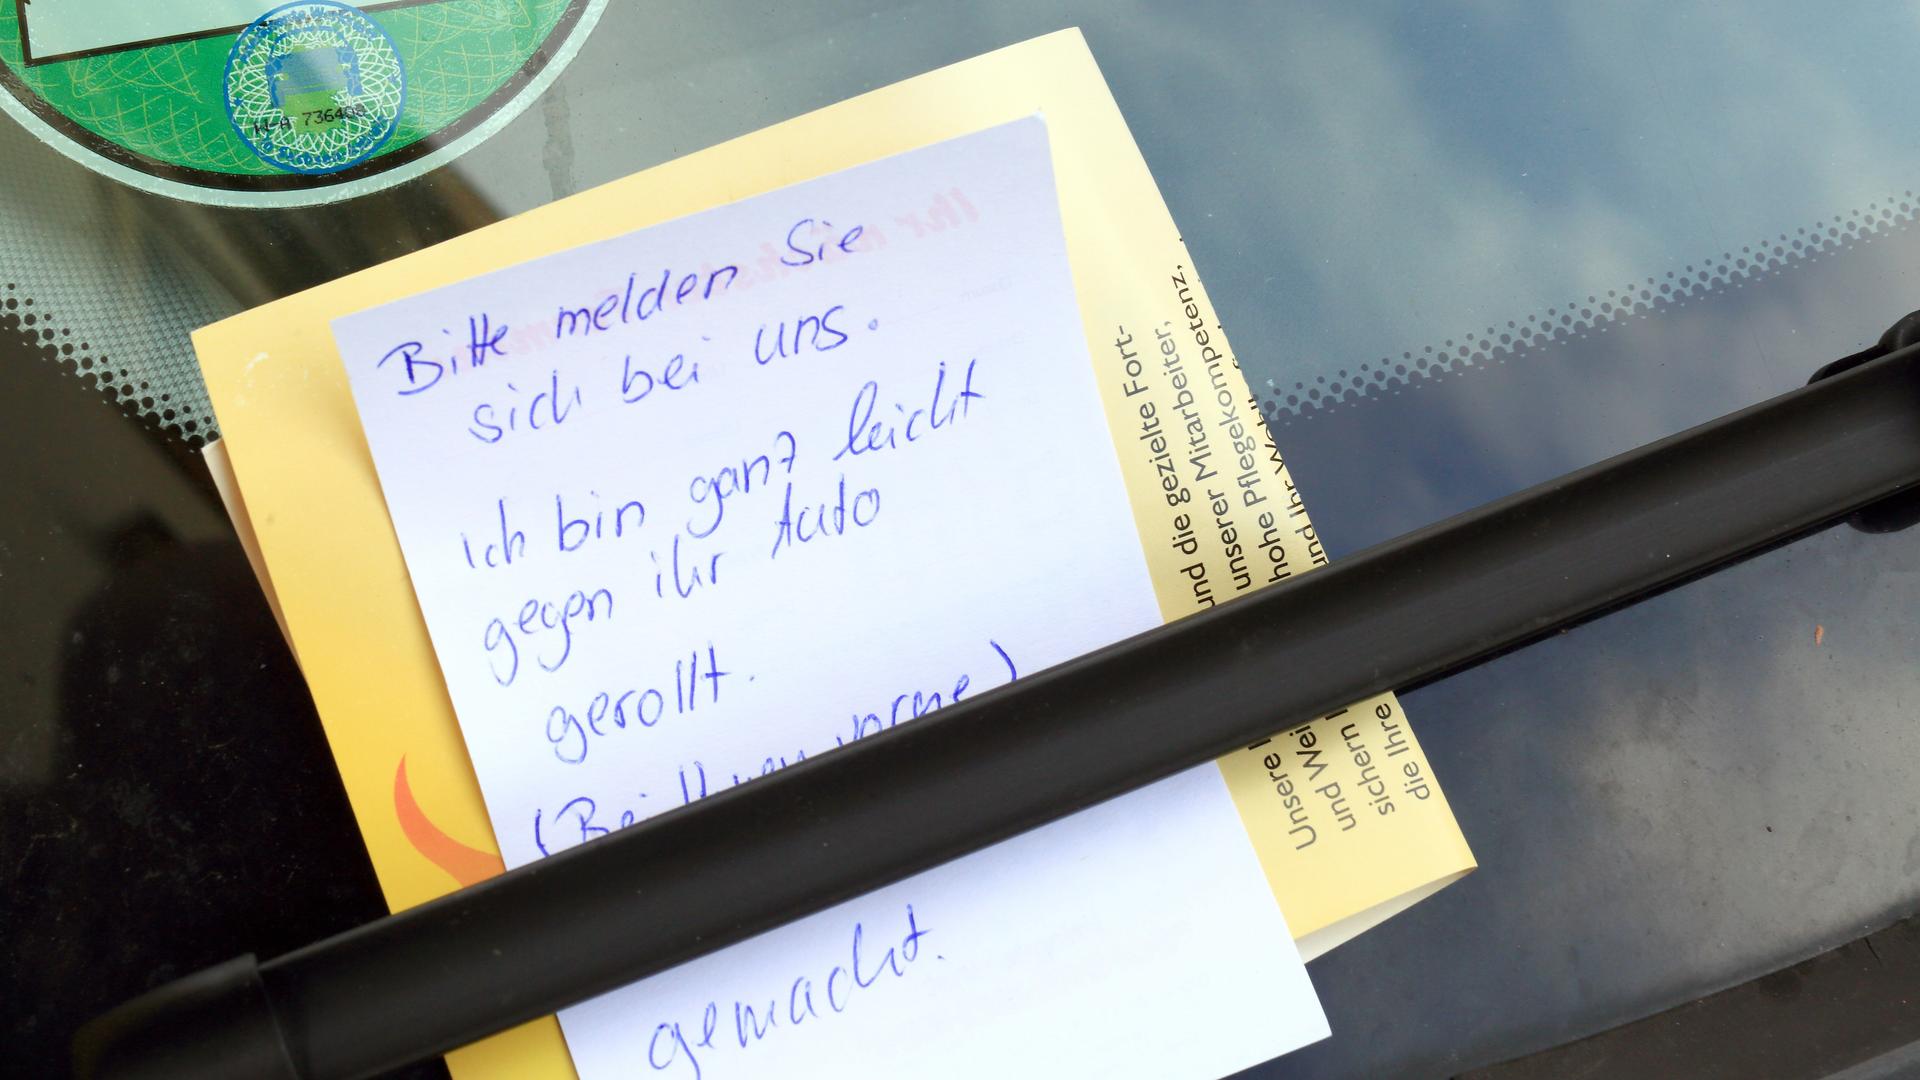 Bitte melden Sie
sich bei uns.
ich bin ganz leicht
gegen ihr Auto
gerollt.
vorne)
gemacht.
und die gezielte Fort-
unserer Mitarbeiter,
hohe Pflegekompetenz,
und Ihr
Unsere
und
sichern
die Ihre